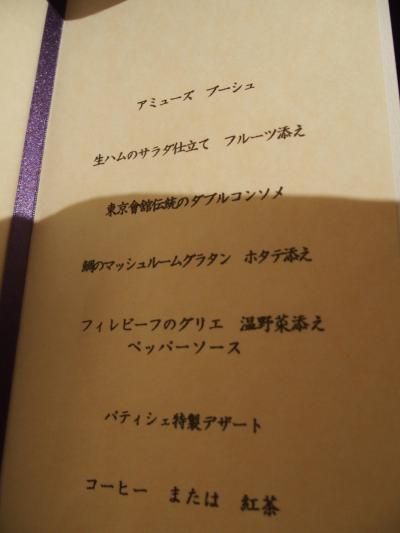 アミューズ ブーシュ
生ハムのサラダ仕立て フルーツ添え
東京會舘伝統のダブルコンソメ
鯛のマッシュルームグラタン ホタテ添え
フィレビーフのグリエ 温野菜添え
ペッパーソース
パティシェ特製デザート
コーヒー または 紅茶